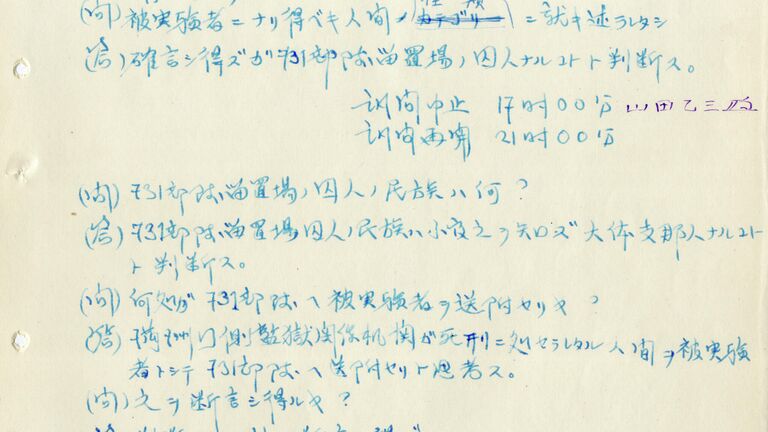 (問) 被実験者ニナリ得ベキ人間ノ種類ニ就キ述ラレタシ
(答) 確言シ得ズガ731部隊留置場ノ囚人ナルコトト判断ス。
訊問中止 17时00分 山田乙三
訊問再開 21时00分
(問) 731部隊留置場ノ囚人ノ民族ハ何?
(答) 731部隊留置場囚人ノ民族ハ小官之ヲ知ロズ 大体支那人ナルコト
ト判断ス。
(問) 何処ガ731部隊ヘ被実験者ヲ送附セリヤ?
(答) 満洲国側監獄関係机関ガ死刑ニ処セラレタル人間ヲ被実験
者トシテ731部隊ヘ送附セリト思考ス。
(問) 之ヲ断言シ得ルヤ?